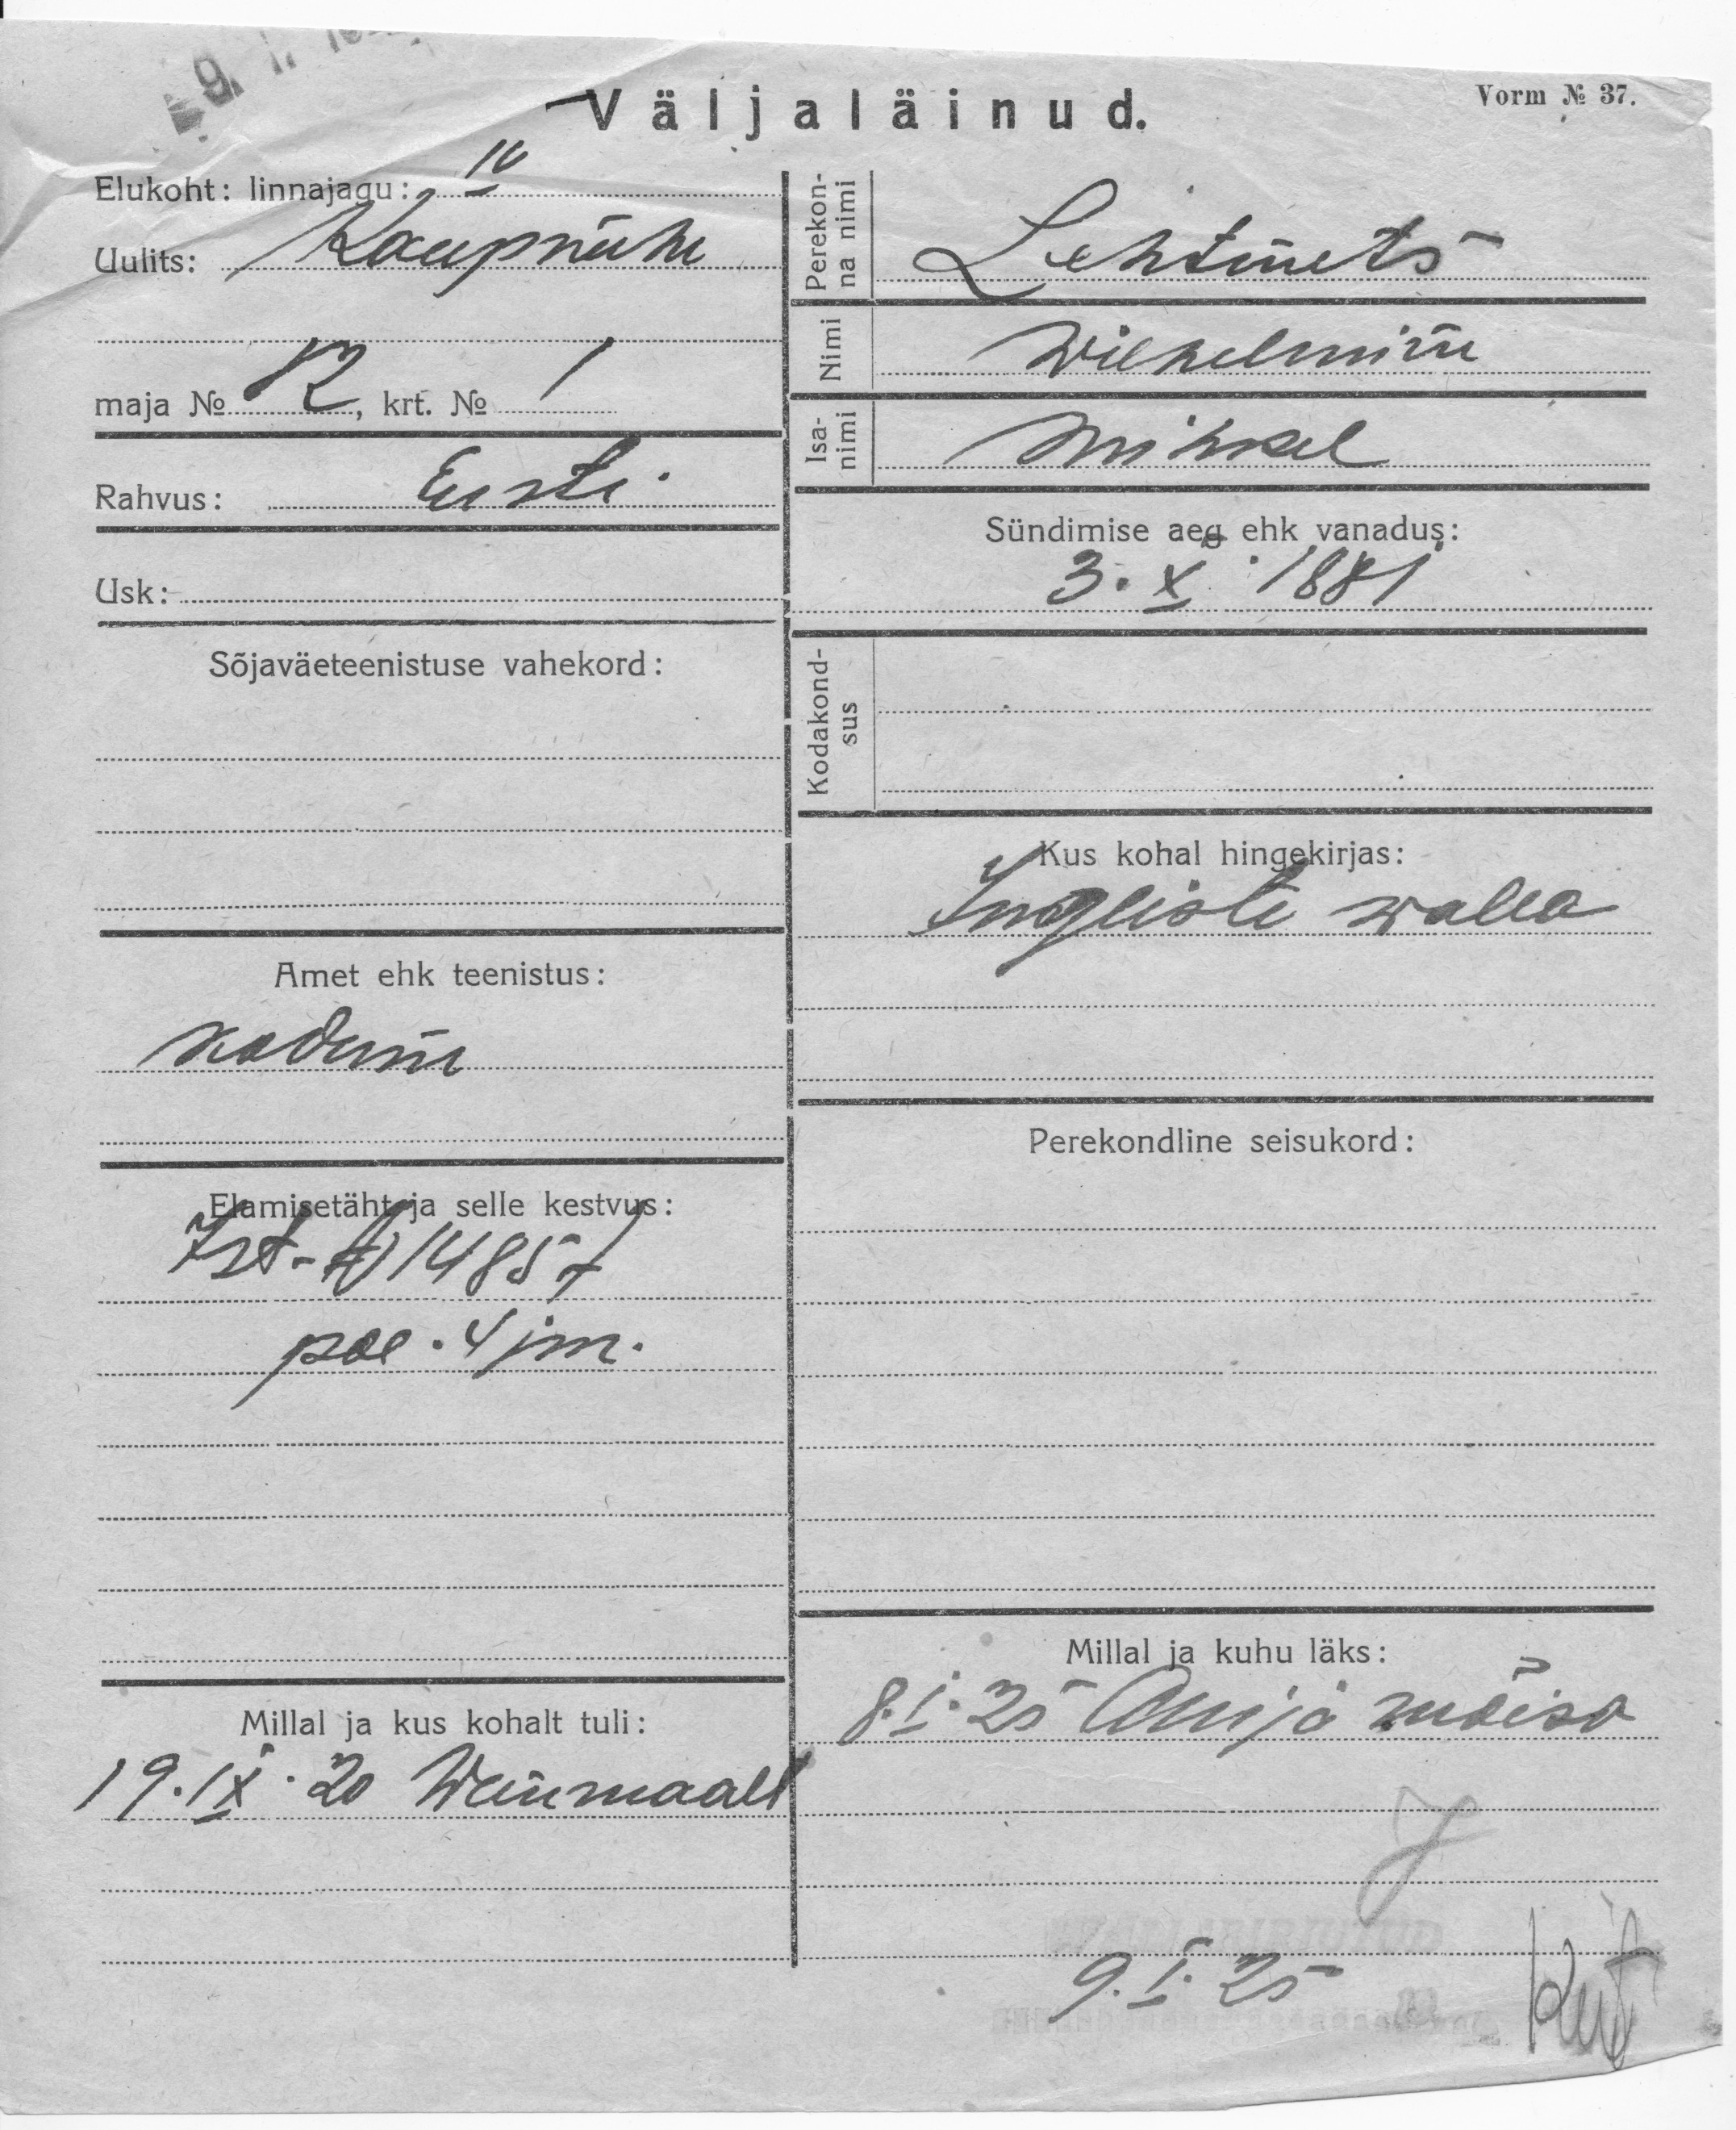 Väljaläinud.
Vorm № 37.
Elukoht: linnajagu: IV
Uulits: Kaupmehe
maja № 12, krt. № 1
Rahvus: Eesti
Usk:
Sõjaväeteenistuse vahekord:
Amet ehk teenistus:
kodune
Elamisetäht ja selle kestvus:
14857
pol. 4 jm.
Millal ja kus kohalt tuli:
19.IX.20 Wenemaalt
Perekonna nimi
Lehtmets
Nimi
Wilhelmine
Isanimi
Mihkel
Sündimise aeg ehk vanadus:
3.X.1881
Kodakondsus
Kus kohal hingekirjas:
Ingliste walla
Perekondline seisukord:
Millal ja kuhu läks:
8.I.25 Anija mõisa
9.I.25